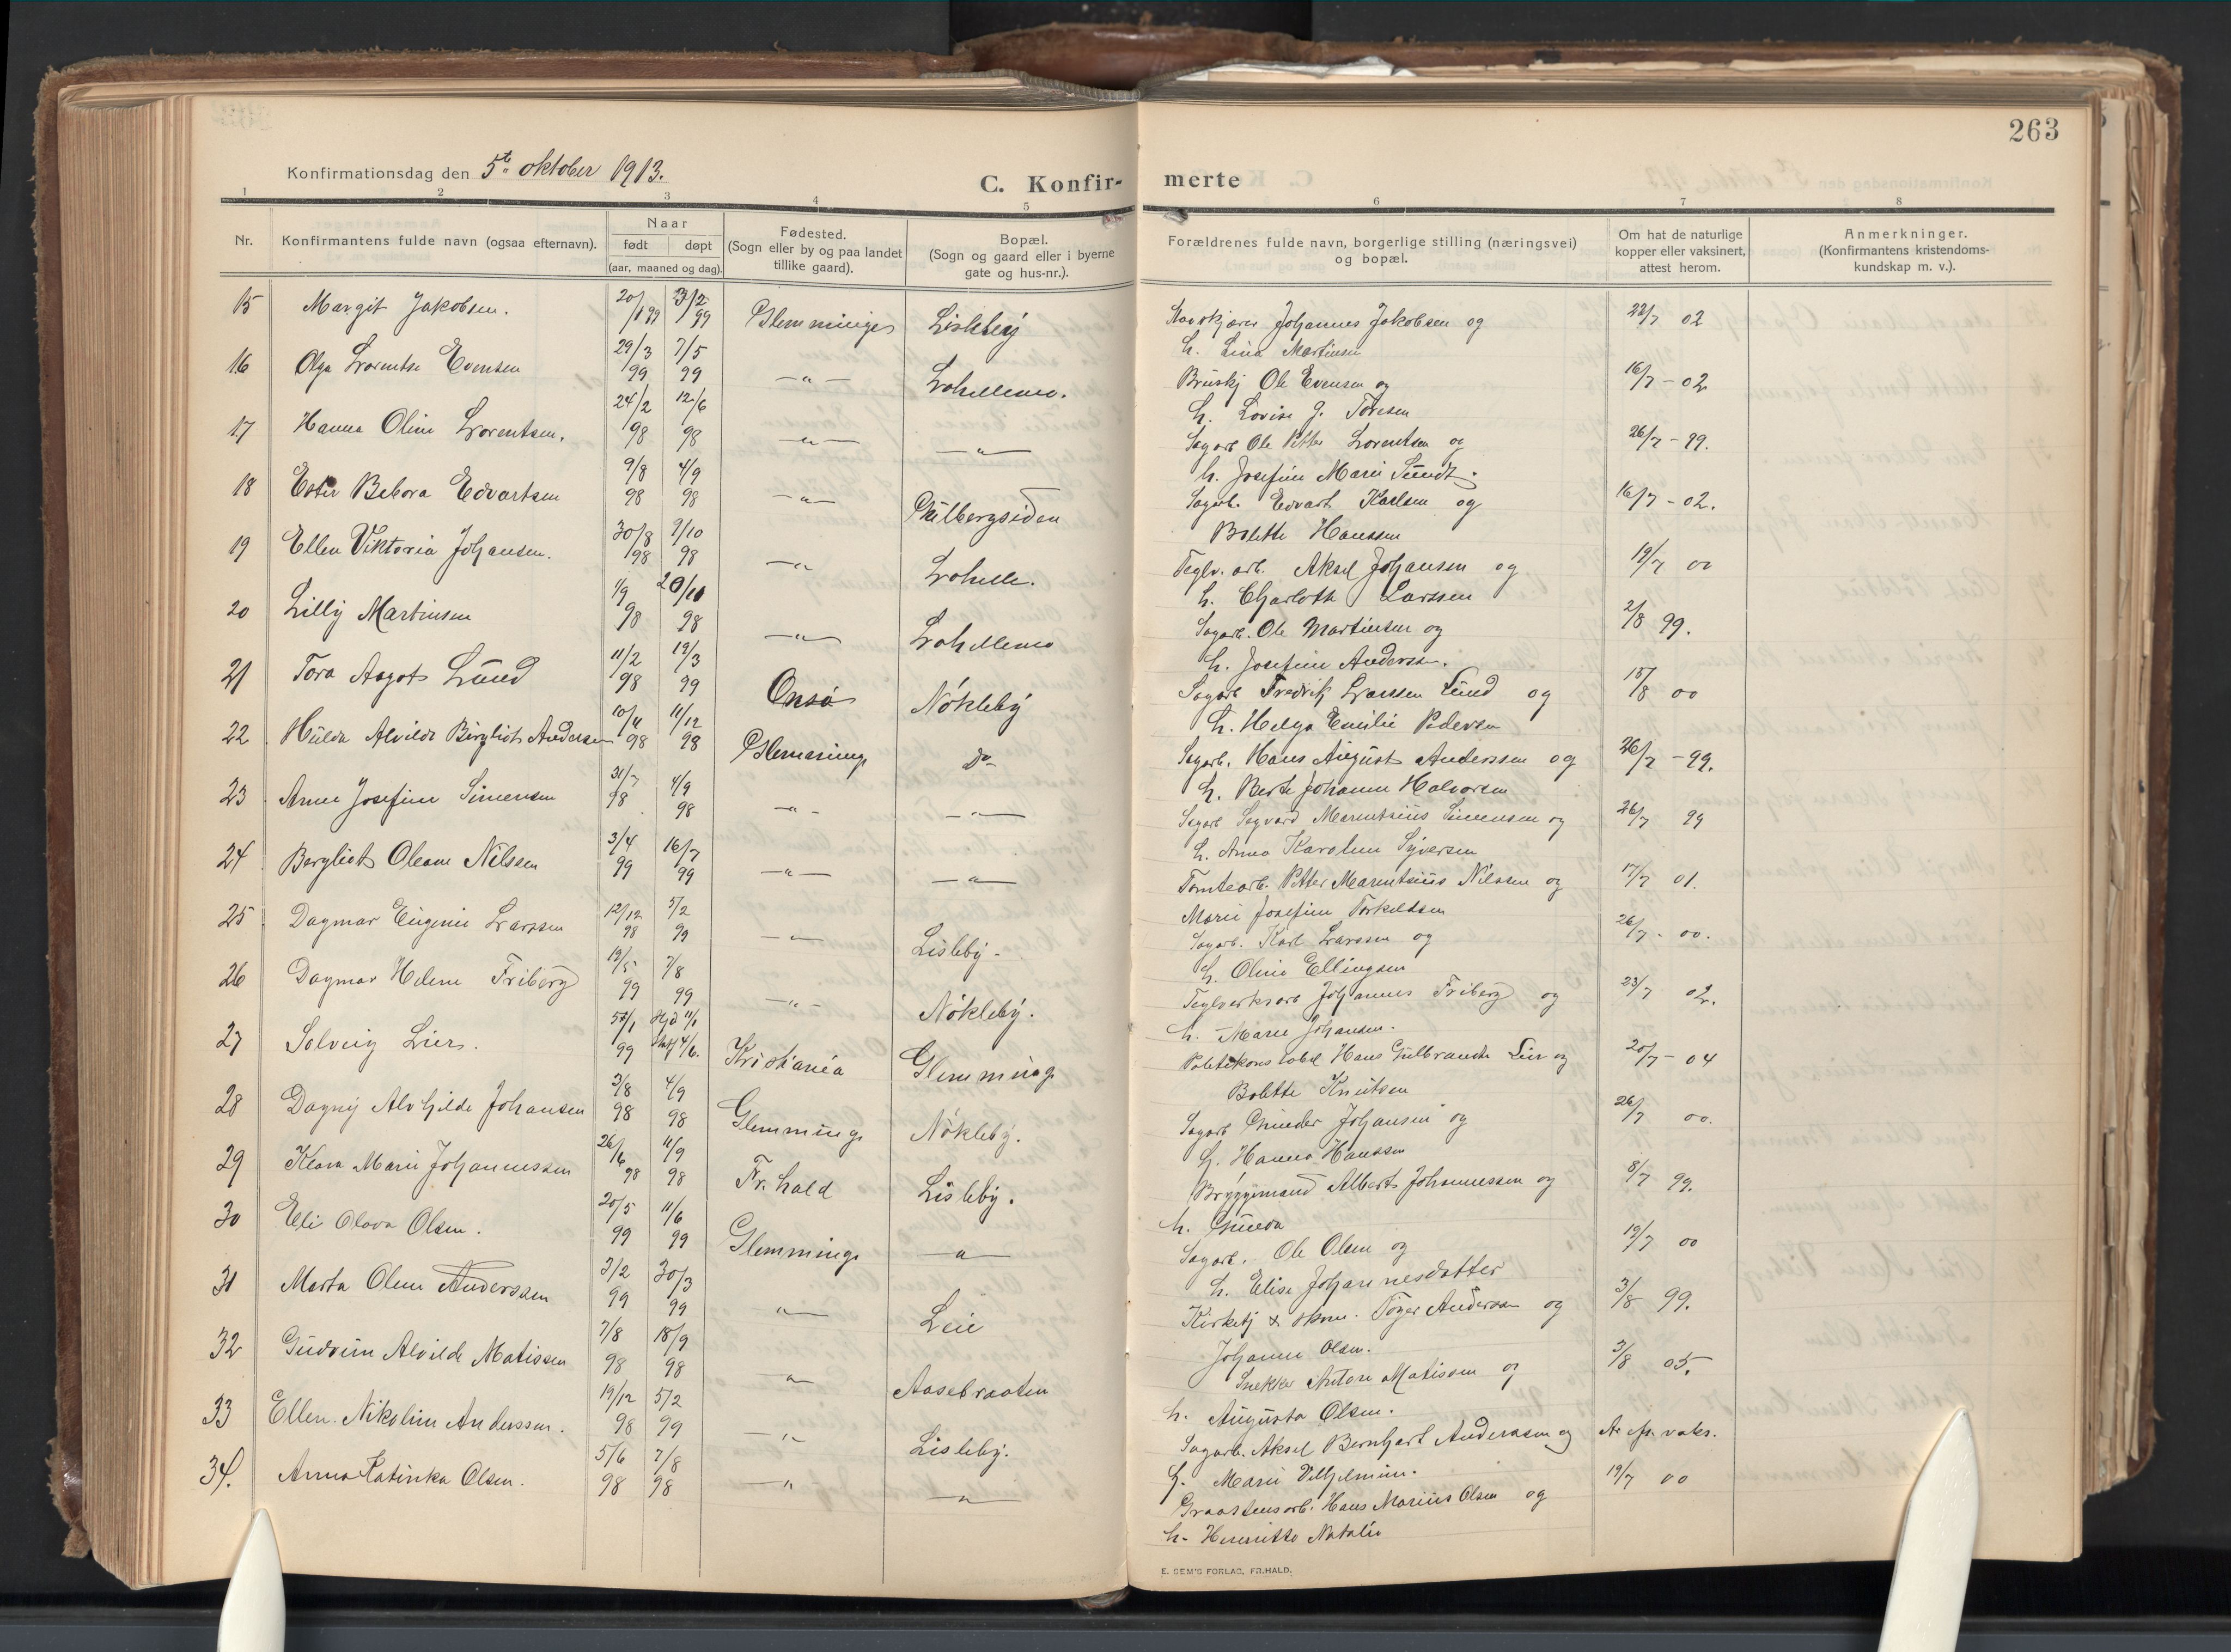 263
Konfirmationsdag den 5te oktober 1913.
C. Konfir-
merte
1 2 3 4 5 6 7 8
Nr.
Konfirmantens fulde navn (ogsaa efternavn).
Naar
født døpt
(aar, maaned og dag).
Fødested.
(Sogn eller by og paa landet
tillike gaard).
Bopæl.
(Sogn og gaard eller i byerne
gate og hus-nr.).
Forældrenes fulde navn, borgerlige stilling (næringsvei)
og bopæl.
Om hat de naturlige
kopper eller vaksinert,
attest herom.
Anmerkninger.
(Konfirmantens kristendoms-
kundskap m. v.).
15 Margit Jakobsen. 20/1 99 3/2 99 Glemminge Lisleby Johannes Jakobsen og 22/7 02
h. Lina Martinsen
16 Olga Lorentse Evensen 29/3 99 7/5 99 —„— Ole Evensen og 16/7 - 02
h. Lovise J. Toresen
17 Hanna Oline Lorentsen. 24/2 98 12/6 98 —„— —„— Sagarb Ole Petter Lorentsen og 26/7 - 99.
h. Josefine Marie Sundt.
18 Ester Bebora Edvartsen 9/8 98 4/9 98 —„— Gulbergsiden Sagarb. Edvart Karlsen og 16/7 - 02.
Bolette Hanssen
19 Ellen Viktoria Johansen. 30/8 98 9/10 98 —„— Teglv. arb. Aksel Johansen og 19/7 00
h. Charlotte Larssen
20 Lilly Martinsen 1/9 98 98 —„— Sagarb. Ole Martinsen og 2/8 99.
h. Josefine Anderssen.
21 Tora Aagot Lund 11/2 98 19/3 99 Onsø Nökleby Sagarb Fredrik Larssen Lund og 18/8 00
h. Helga Emilie Pedersen
22 Hulda Alvilde Bergliot Andersen 98 11/12 98 Glemminge Do Sagarb. Hans August Anderssen og 26/7 - 99.
h. Berte Johanne Halvorsen
23 Anne Josefine Simensen 31/7 98 4/9 98 —„— —„— Sagarb Sigvard Marentsius Simensen og 26/7 99
h. Anna Karoline Syversen
24 Bergliot Oleane Nilsen 3/4 99 16/7 99 —„— —„— Tomtearb. Petter Marentsius Nilssen og 17/7 01.
Marie Josefine Torkeldsen
25 Dagmar Eugenie Larssen 12/12 98 5/2 99 —„— Lisleby - Sagarb. Karl Larssen og 26/7 - 00.
h. Oline Ellingsen
26 Dagmar Helene Friberg 13/5 99 7/8 99 —„— Nökleby. Teglverksarb Johannes Friberg og 23/7 02.
h. Marie Johansen.
27 Solveig Liers. 99 Hjd 11/1 4/6. Kristiania Glemminge Politikonstabel Hans Gulbrandsen Lier og 20/7 - 04
Bolette Knutsen
28 Dagny Alvhilde Johansen 3/8 98 4/9 98 Glemminge Nökleby. Sagarb Gunder Johansen og 26/7 00.
h. Hanna Hanssen
29 Klara Marie Johannessen 26/6 98 11/9 98 Fr. hald Lisleby. Bryggemand Albert Johannessen og 8/7 99.
h. Gunda
30 Eli Olava Olsen. 20/5 99 11/6 99 Glemminge —„— Sagarb. Ole Olsen og 19/7 00
h. Elise Johannesdatter
31 Marta Olene Anderssen 3/2 99 30/3 99 —„— Leie Kirketj & skom. Anderssen og 3/8 99.
Johanne Olsen.
32 Gudrun Alvilde Matissen 7/8 98 18/9 98 —„— Aasebraaten Snekker Anton Matissen og 3/8 05.
h. Augusta Olsen.
33 Ellen Nikoline Anderssen. 19/12 98 5/2 99 —„— Lisleby. Sagarb. Aksel Bernhart Anderssen og vaks.
h. Marie Vilhelmine.
34. Anna Katinka Olsen. 5/6 98 7/8 98 —„— —„— Graastensarb. Hans Marius Olsen og 19/7 00
h. Henriette Natalie
E. SEM'S FORLAG, FR.HALD.